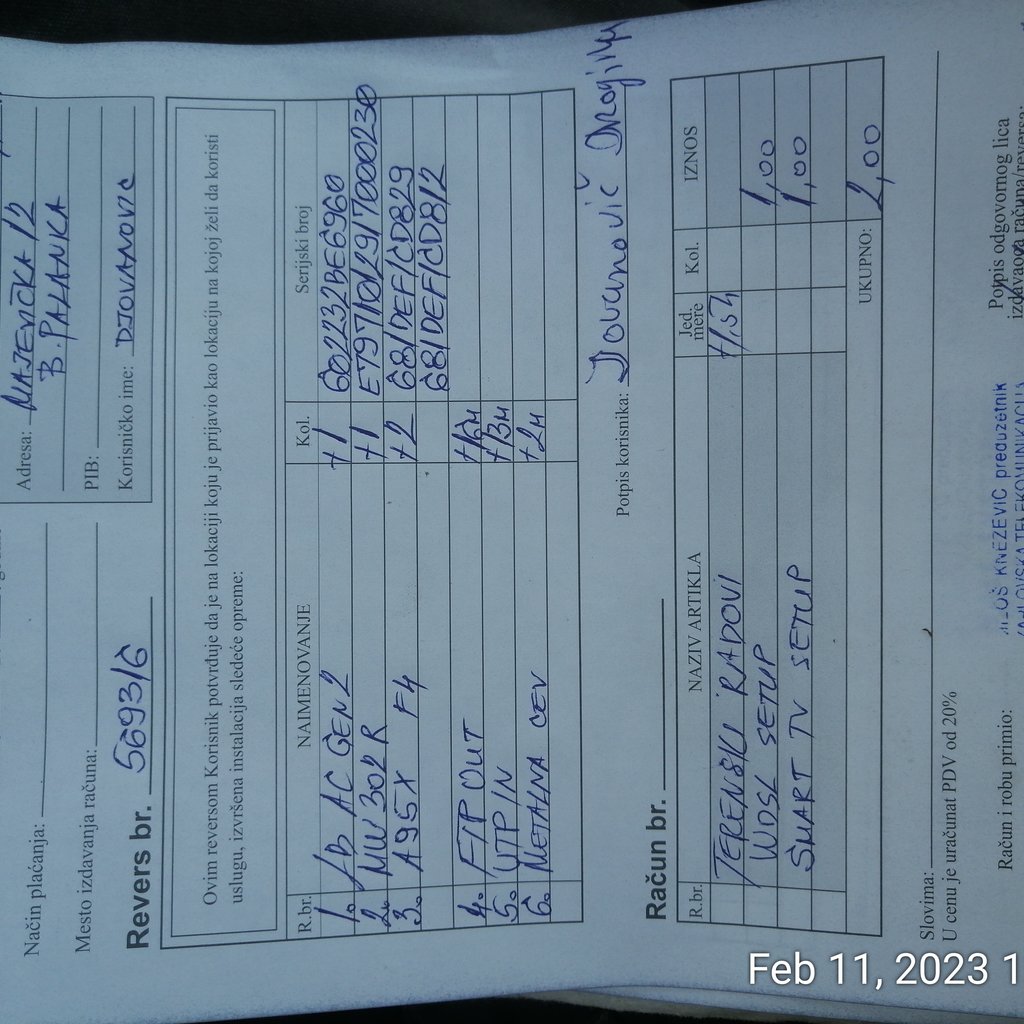 Način plaćanja:
Mesto izdavanja računa:
Adresa: MAJEVIČKA 12
B. PALANKA
PIB:
Korisničko ime: DJOVANOVIC
Revers br. 5693/6
Ovim reversom Korisnik potvrđuje da je na lokaciji koju je prijavio kao lokaciju na kojoj želi da koristi
uslugu, izvršena instalacija sledeće opreme:
R.br. NAIMENOVANJE Kol. Serijski broj
1. LB AC GEN2 +1 60232BE6960
2. MW 302 R +1
3. A95X F4 +2 681DEF1CD829
681DEF1CD812
4. FTP OUT +16M
5. UTP IN +13M
6. METALNA CEV +2M
Potpis korisnika: Jovanović
Račun br.
R.br. NAZIV ARTIKLA Jed. mere Kol. IZNOS
TERENSKI RADOVI +1,5h
WDSL SETUP 1,00
SMART TV SETUP 1,00
UKUPNO: 2,00
Slovima:
U cenu je uračunat PDV od 20%
Račun i robu primio:
KNEŽEVIĆ preduzetnik
TELEKOMUNIKACIJA
Potpis odgovornog lica
izdavaoca računa/reversa:
Feb 11, 2023 1